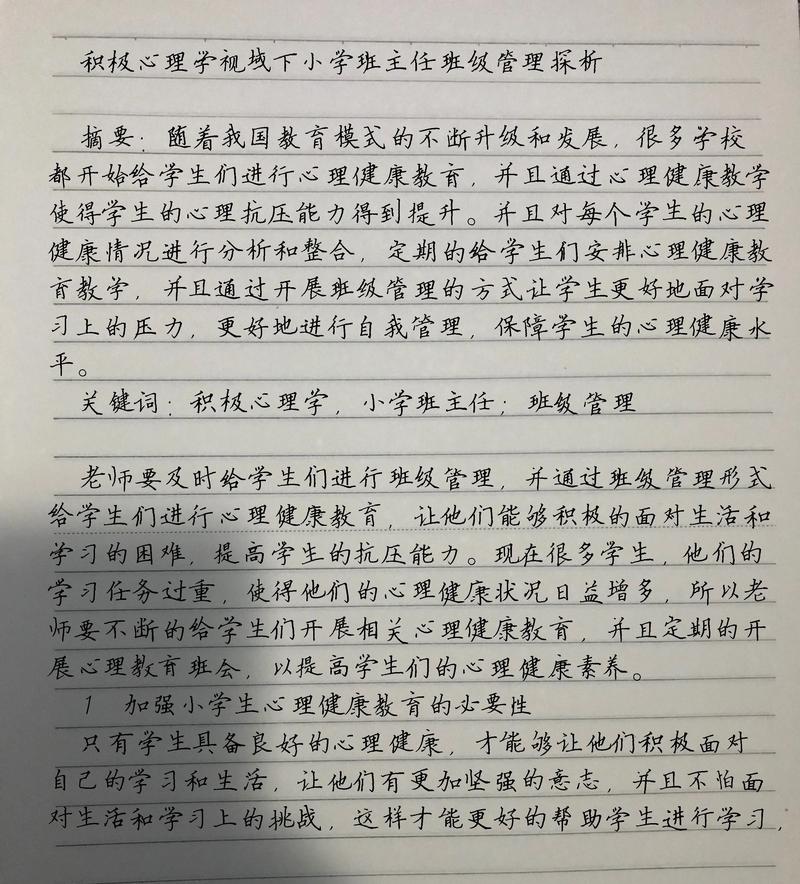 积极心理学视域下小学班主任班级管理探析
摘要：随着我国教育模式的不断升级和发展，很多学校
都开始给学生们进行心理健康教育，并且通过心理健康教学
使得学生的心理抗压能力得到提升。并且对每个学生的心理
健康情况进行分析和整合，定期的给学生们安排心理健康教
育教学，并且通过开展班级管理的方式让学生更好地面对学
习上的压力，更好地进行自我管理，保障学生的心理健康水
平。
关键词：积极心理学，小学班主任；班级管理
老师要及时给学生们进行班级管理，并通过班级管理形式
给学生们进行心理健康教育，让他们能够积极的面对生活和
学习的困难，提高学生的抗压能力。现在很多学生，他们的
学习任务过重，使得他们的心理健康状况日益增多，所以老
师要不断的给学生们开展相关心理健康教育，并且定期的开
展心理教育班会，以提高学生们的心理健康素养。
1 加强小学生心理健康教育的必要性
只有学生具备良好的心理健康，才能够让他们积极面对
自己的学习和生活，让他们有更加坚强的意志，并且不怕面
对生活和学习上的挑战，这样才能更好的帮助学生进行学习，